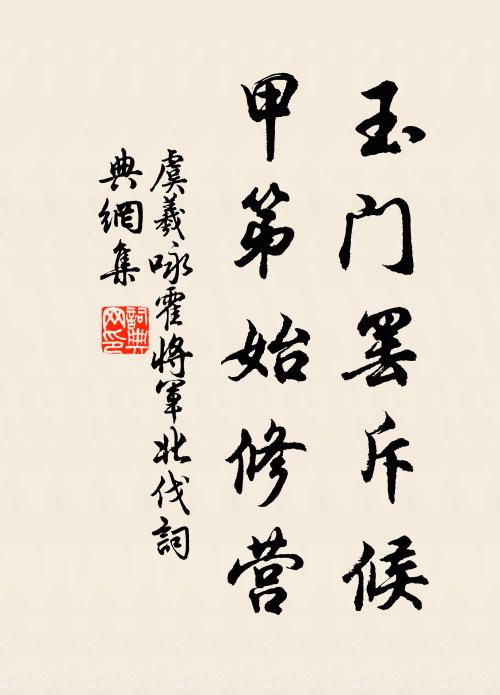 玉门罢斥候
甲第始修营
虞羲咏霍將軍北伐詞
典網集
詞典
网印